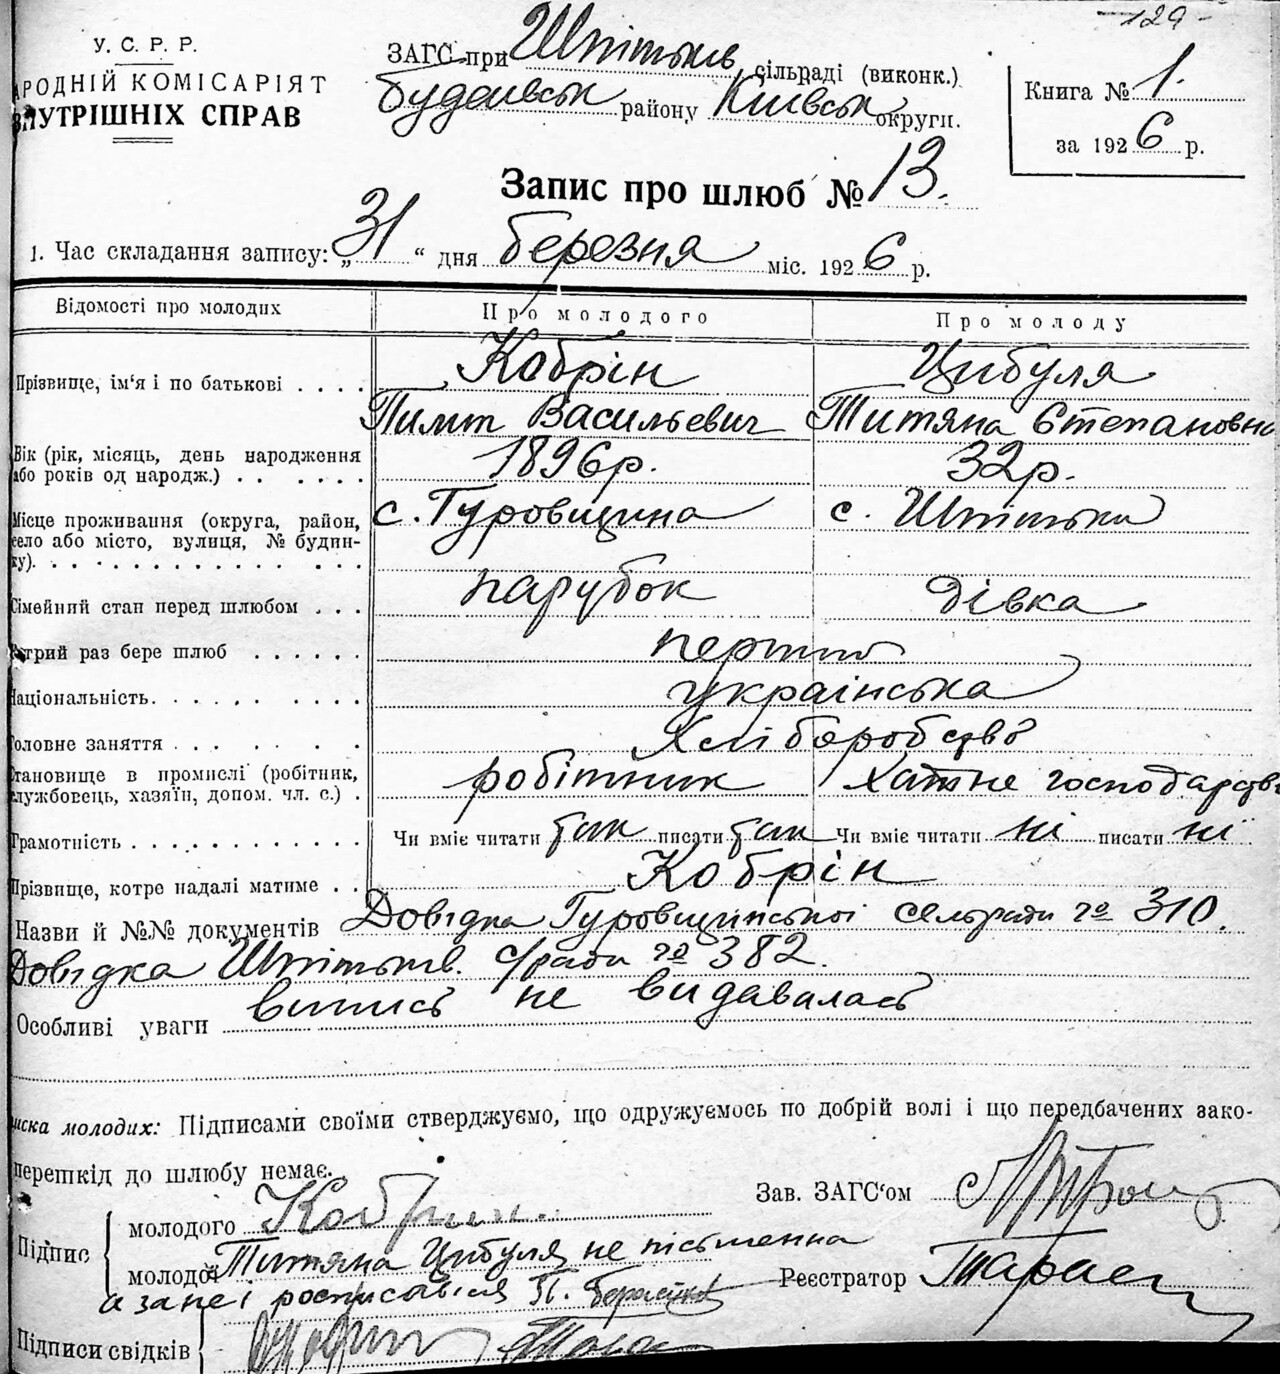 129
У. С. Р. Р.
РОДНІЙ КОМІСАРІЯТ
ВНУТРІШНІХ СПРАВ
ЗАГС при Шпітьків сільраді (виконк.)
Будаївськ району Київськ округи.
Книга № 1.
за 1926 р.
Запис про шлюб № 13.
1. Час складання запису: „31“ дня березня міс. 1926 р.
Відомості про молодих
Про молодого
Про молоду
Прізвище, ім'я і по батькові . . . . Кобрін Цибуля
Пилип Васильевич Титяна Степановна
Вік (рік, місяць, день народження
або років од народж.) . . . . . . 1896р. 32р.
Місце проживання (округа, район, с. Гуровщина с. Шпітьки
село або місто, вулиця, № будин-
ку). . . . . . . . . . . . . . .
Сімейний стан перед шлюбом . . . парубок дівка
Котрий раз бере шлюб . . . . . . перший
Національність. . . . . . . . . . українська
Головне заняття . . . . . . . Хліборобство
Становище в промислі (робітник, робітник Хатне господарство
службовець, хазяїн, допом. чл. с.) .
Грамотність . . . . . . . . . . . . Чи вміє читати так писати так Чи вміє читати ні писати ні
Прізвище, котре надалі матиме . . Кобрін
Назви й №№ документів Довідка Гуровщинської сельради № 310.
Довідка Шпітьків. с/ради № 382.
Особливі уваги випись не видавалась
иска молодих: Підписами своїми стверджуємо, що одружуємось по добрій волі і що передбачених зако-
перешкід до шлюбу немає.
Зав. ЗАГС'ом
Підпис
молодого Кобрин
молодої Титяна Цибуля не письменна
а за неї росписався П.
Реєстратор Тарас
Підписи свідків